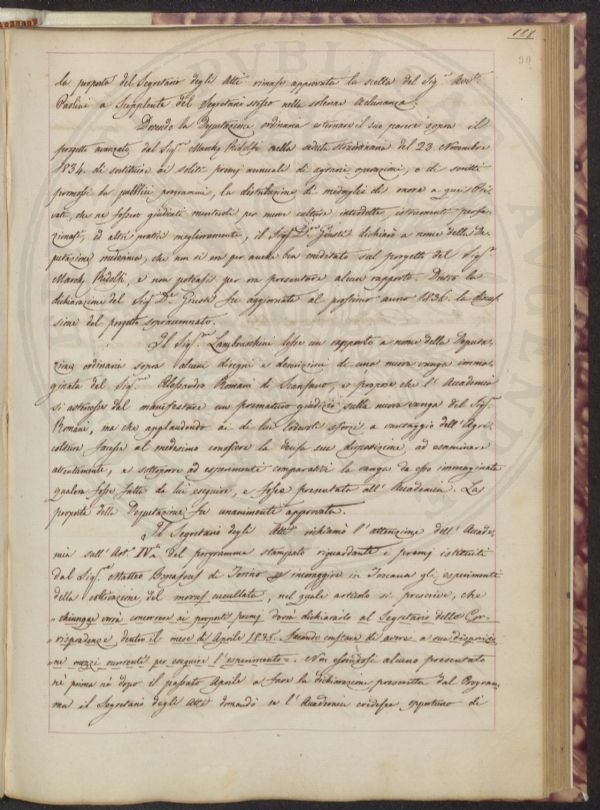 111.
90
la proposta del Segretario degli Atti rimase approvata la scelta del Sig.r Avv.to
Paolini a Supplente del Segretario stesso nelle solenni Adunanze.
Dovendo la Deputazione ordinaria esternare il suo parere sopra il
progetto avanzato dal Sig.r March. Ridolfi nella seduta straordinaria del 23. Novembre
1834. di sostituire ai soliti premj annuali di agrarie operazioni, o di scritti
promossi da pubblici programmi, la distribuzione di medaglie di onore a quei Pri-
vati, che ne fossero giudicati meritevoli per nuove culture introdotte, istrumenti perfe-
zionati, ed altri pratici miglioramenti, il Sig.r D.re Giusti dichiarò a nome della De-
putazione medesima, che non si era per anche ben meditato sul progetto del Sig.r
March. Ridolfi, e non potevasi per ora presentare alcun rapporto. Dietro la
dichiarazione del Sig.r D.re Giusti fu aggiornata al prossimo anno 1836. la discus-
sione del progetto sopraccennato.
Il Sig.r Lambruschini lesse un rapporto a nome della Deputa-
zione ordinaria sopra alcuni disegni e descrizioni di una nuova vanga imma-
ginata dal Sig.r Alessandro Romani di Scansano, e propose che l'Accademia
si astenesse dal manifestare un prematuro giudizio sulla nuova vanga del Sig.r
Romani, ma che applaudendo ai di lui lodevoli sforzi a vantaggio dell'Agri-
coltura facesse al medesimo conoscere la decisa sua disposizione ad esaminare
attentamente, e sottoporre ad esperimenti comparativi la vanga da esso immaginata
qualora fosse fatta da lui eseguire, e fosse presentata all'Accademia. La
proposta della Deputazione fu unanimemente approvata.
Il Segretario degli Atti richiamò l'attenzione dell'Accade-
mia sull'Art.o IV.o del programma stampato riguardante i premj istituiti
dal Sig.r Matteo Bonafous di Torino per incoraggire in Toscana gli esperimenti
della coltivazione del morus cucullata, nel quale articolo si prescrive, che
"chiunque vorrà concorrere ai proposti premj dovrà dichiararlo al Segretario delle Cor-
"rispondenze dentro il mese di Aprile 1835. facendo constare di avere a sua disposizio-
"ne mezzi convenienti per eseguire l'esperimento". Non essendosi alcuno presentato
nè prima nè dopo il passato Aprile a fare la dichiarazione prescritta dal Program-
ma il Segretario degli Atti domandò se l'Accademia credesse opportuno di